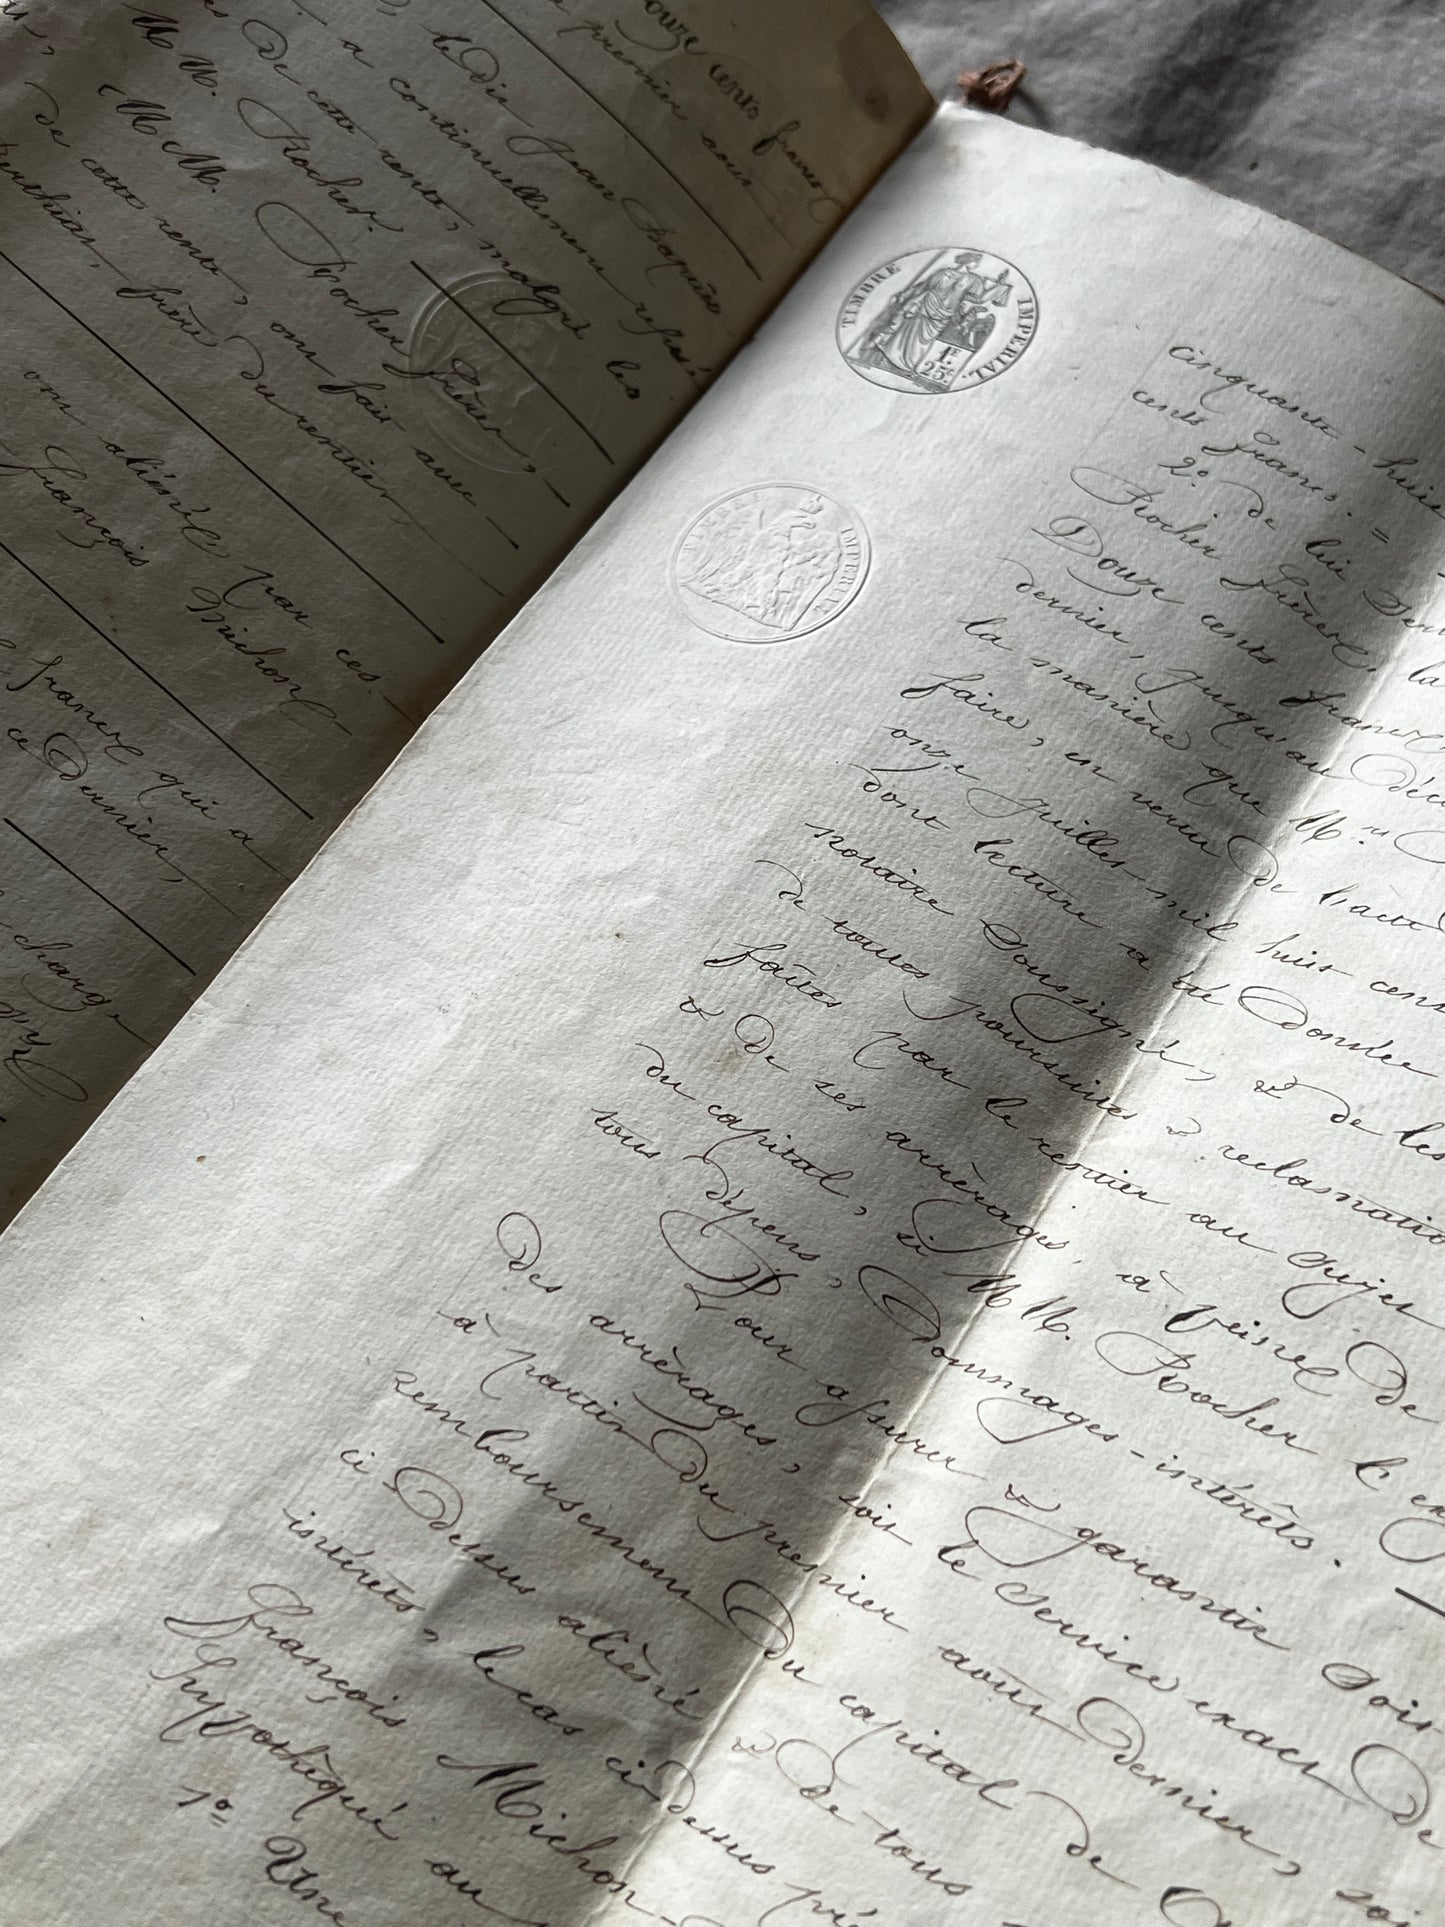 Douze cents francs
premier août
le dit Jean Baptiste
a continuellement refusé
de cette rente, malgré les
MM. Rocher
MM. Rocher frères,
de cette rente, ont fait avec
frère du rentier
ont aliéné par ces
François Michon
francs qui a
ce dernier,
charge
TIMBRE IMPÉRIAL
1F 25c
TIMBRE IMPÉRIAL
cinquante-huit
cents francs. =
2° de lui
Rocher frères, la
Douze cents francs
dernier, jusqu'au
la manière que Mrs
faire, en vertu de l'acte
onze juillet mil huit cent
dont lecture a été donnée
notaire soussigné, & de les
de toutes poursuites & réclamations
faites par le rentier au sujet
& de ses arrérages, à peine de
du capital, si MM. Rocher l'
tous dépens, dommages-intérêts.
Pour assurer & garantir soit
des arrérages, soit le service exact de
à partir du premier août dernier, soit
remboursement du capital de
ci dessus aliéné & de tous
intérêts, le cas ci dessus
François Michon
hypothéqué au
1° Une